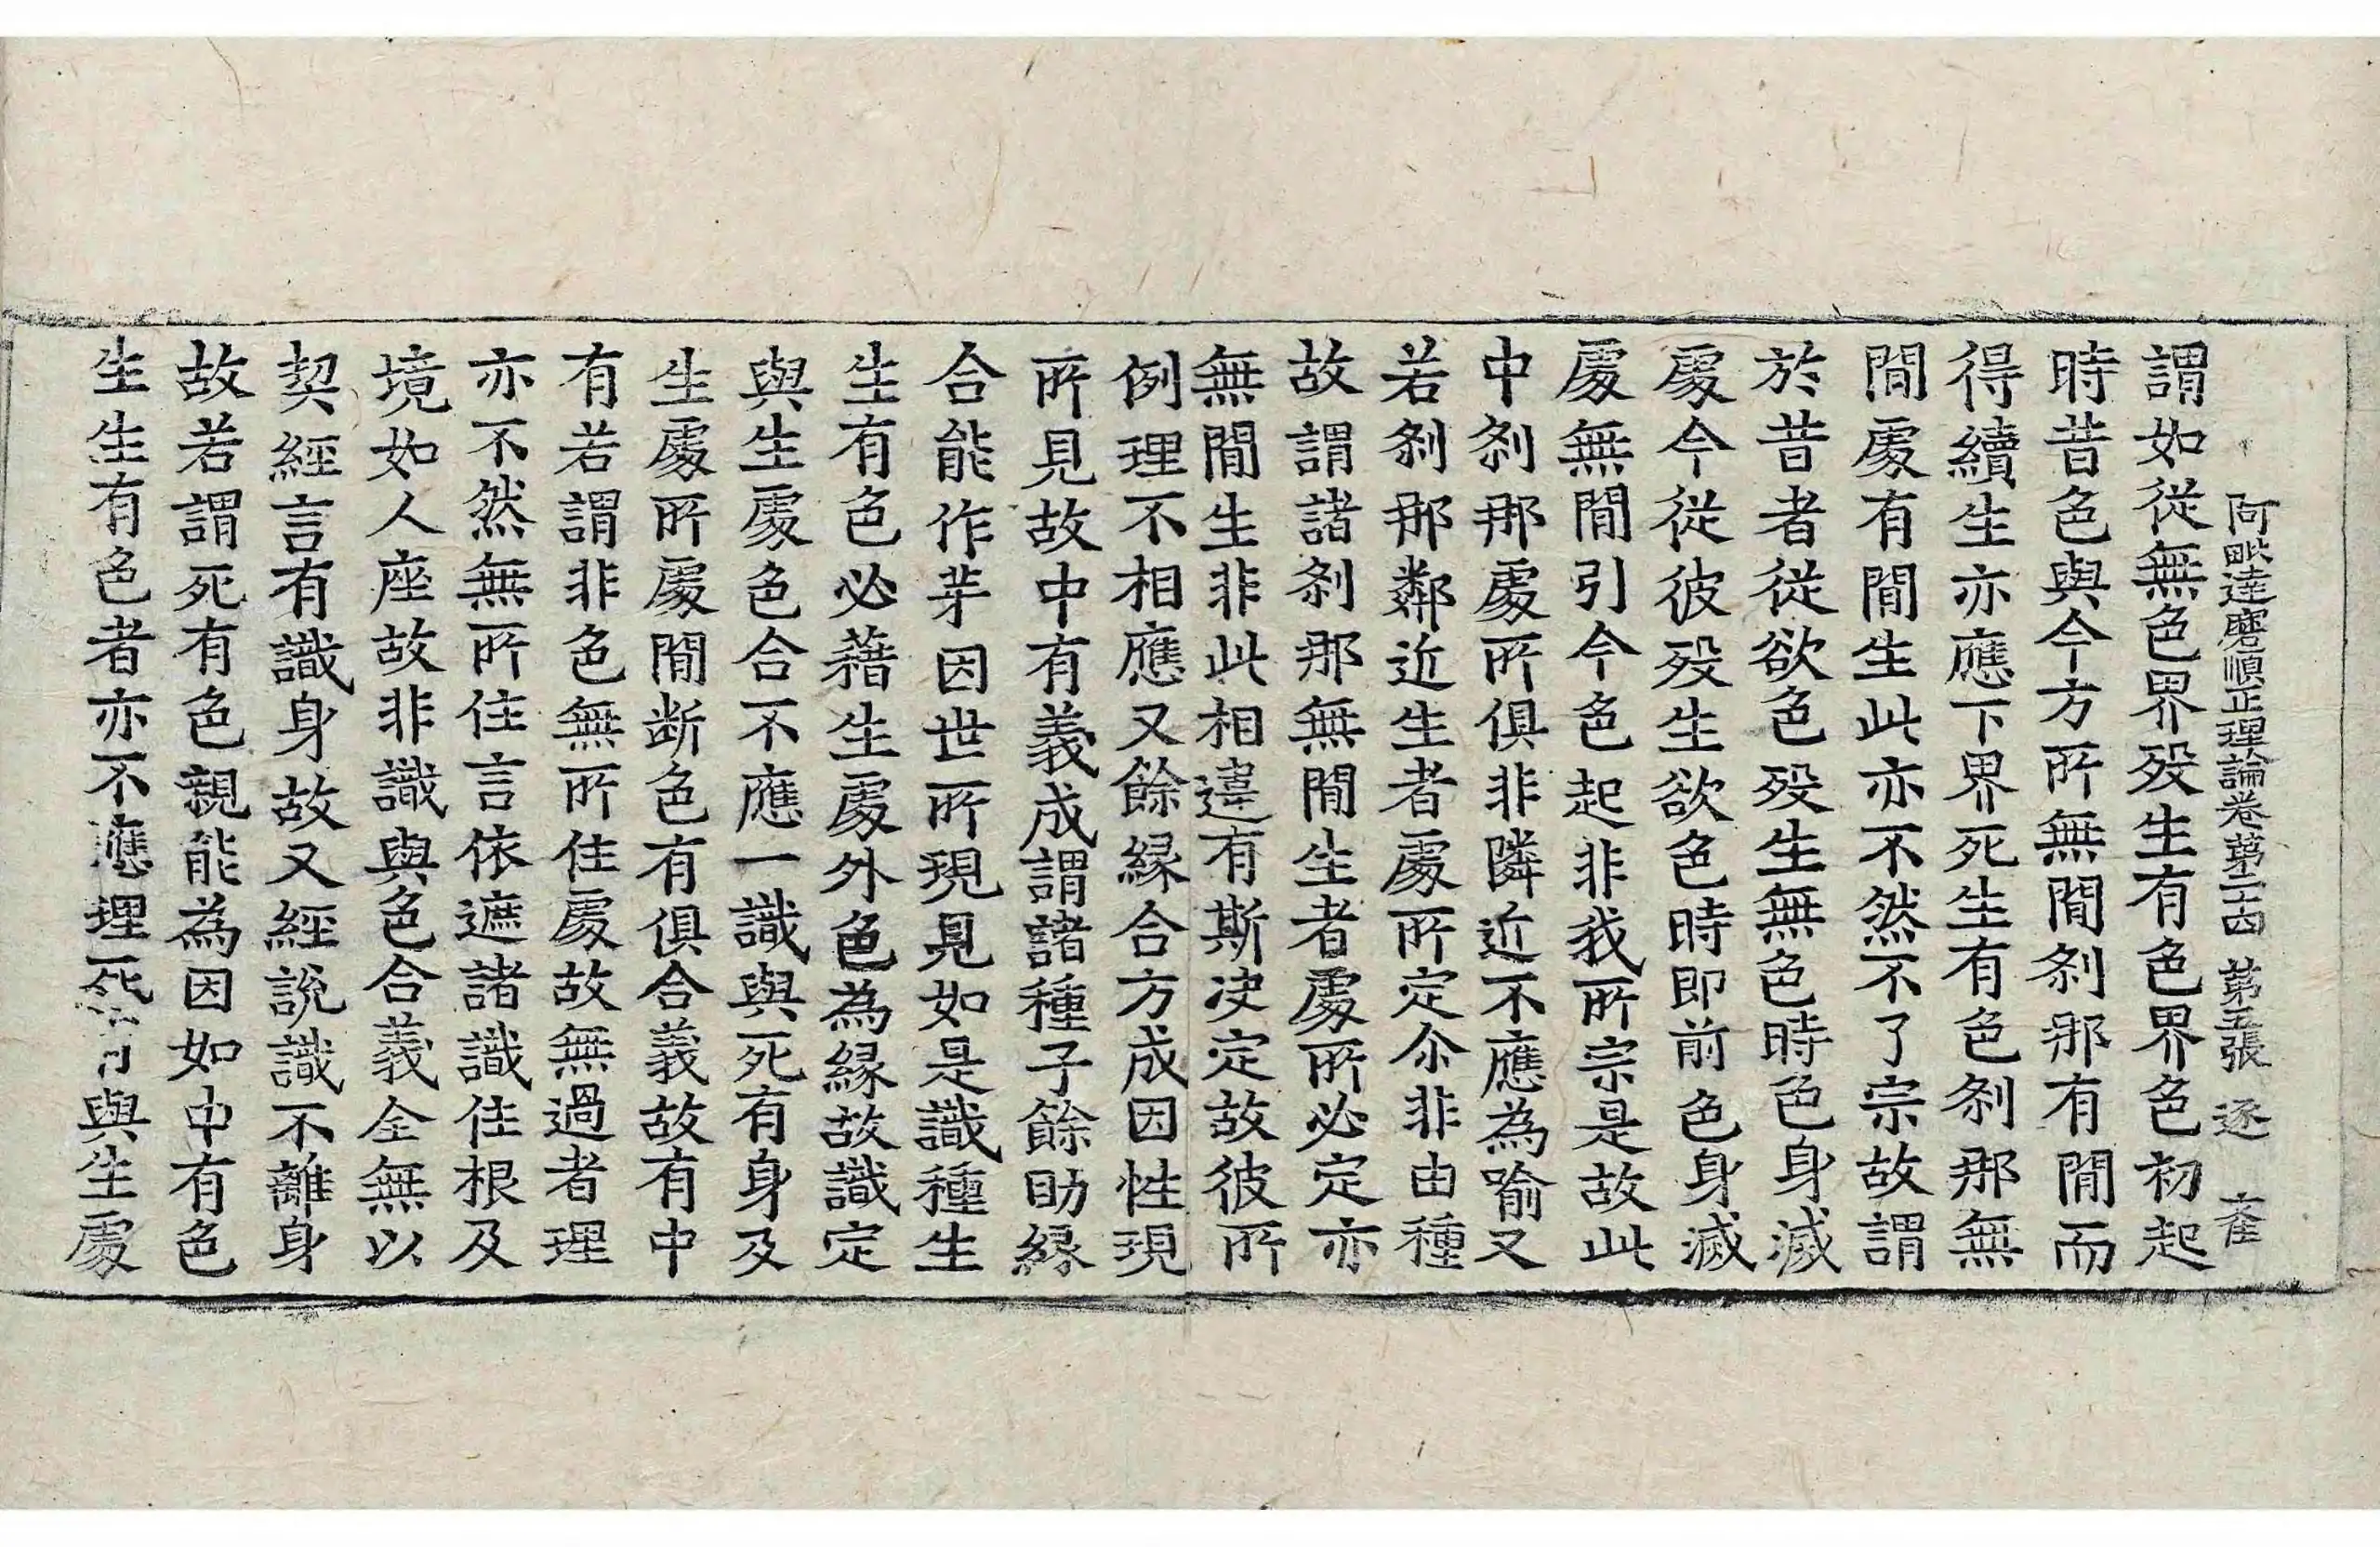 阿毗達磨順正理論卷第二十四 第五張 逐
謂如從無色界歿生有色界色初起
時昔色與今方所無閒刹那有閒而
得續生亦應下界死生有色刹那無
閒處有閒生此亦不然不了宗故謂
於昔者從欲色歿生無色時色身滅
處今從彼歿生欲色時即前色身滅
處無閒引今色起非我所宗是故此
中刹那處所俱非隣近不應為喻又
若刹那鄰近生者處所定尒非由種
故謂諸刹那無閒生者處所必定亦
無閒生非此相違有斯决定故彼所
例理不相應又餘緣合方成因性現
所見故中有義成謂諸種子餘助緣
合能作芽因世所現見如是識種生
生有色必藉生處外色為緣故識定
與生處色合不應一識與死有身及
生處所處閒断色有俱合義故有中
有若謂非色無所住處故無過者理
亦不然無所住言依遮諸識住根及
境如人座故非識與色合義全無以
契經言有識身故又經說識不離身
故若謂死有色親能為因如中有色
生生有色者亦不應理死有與生處